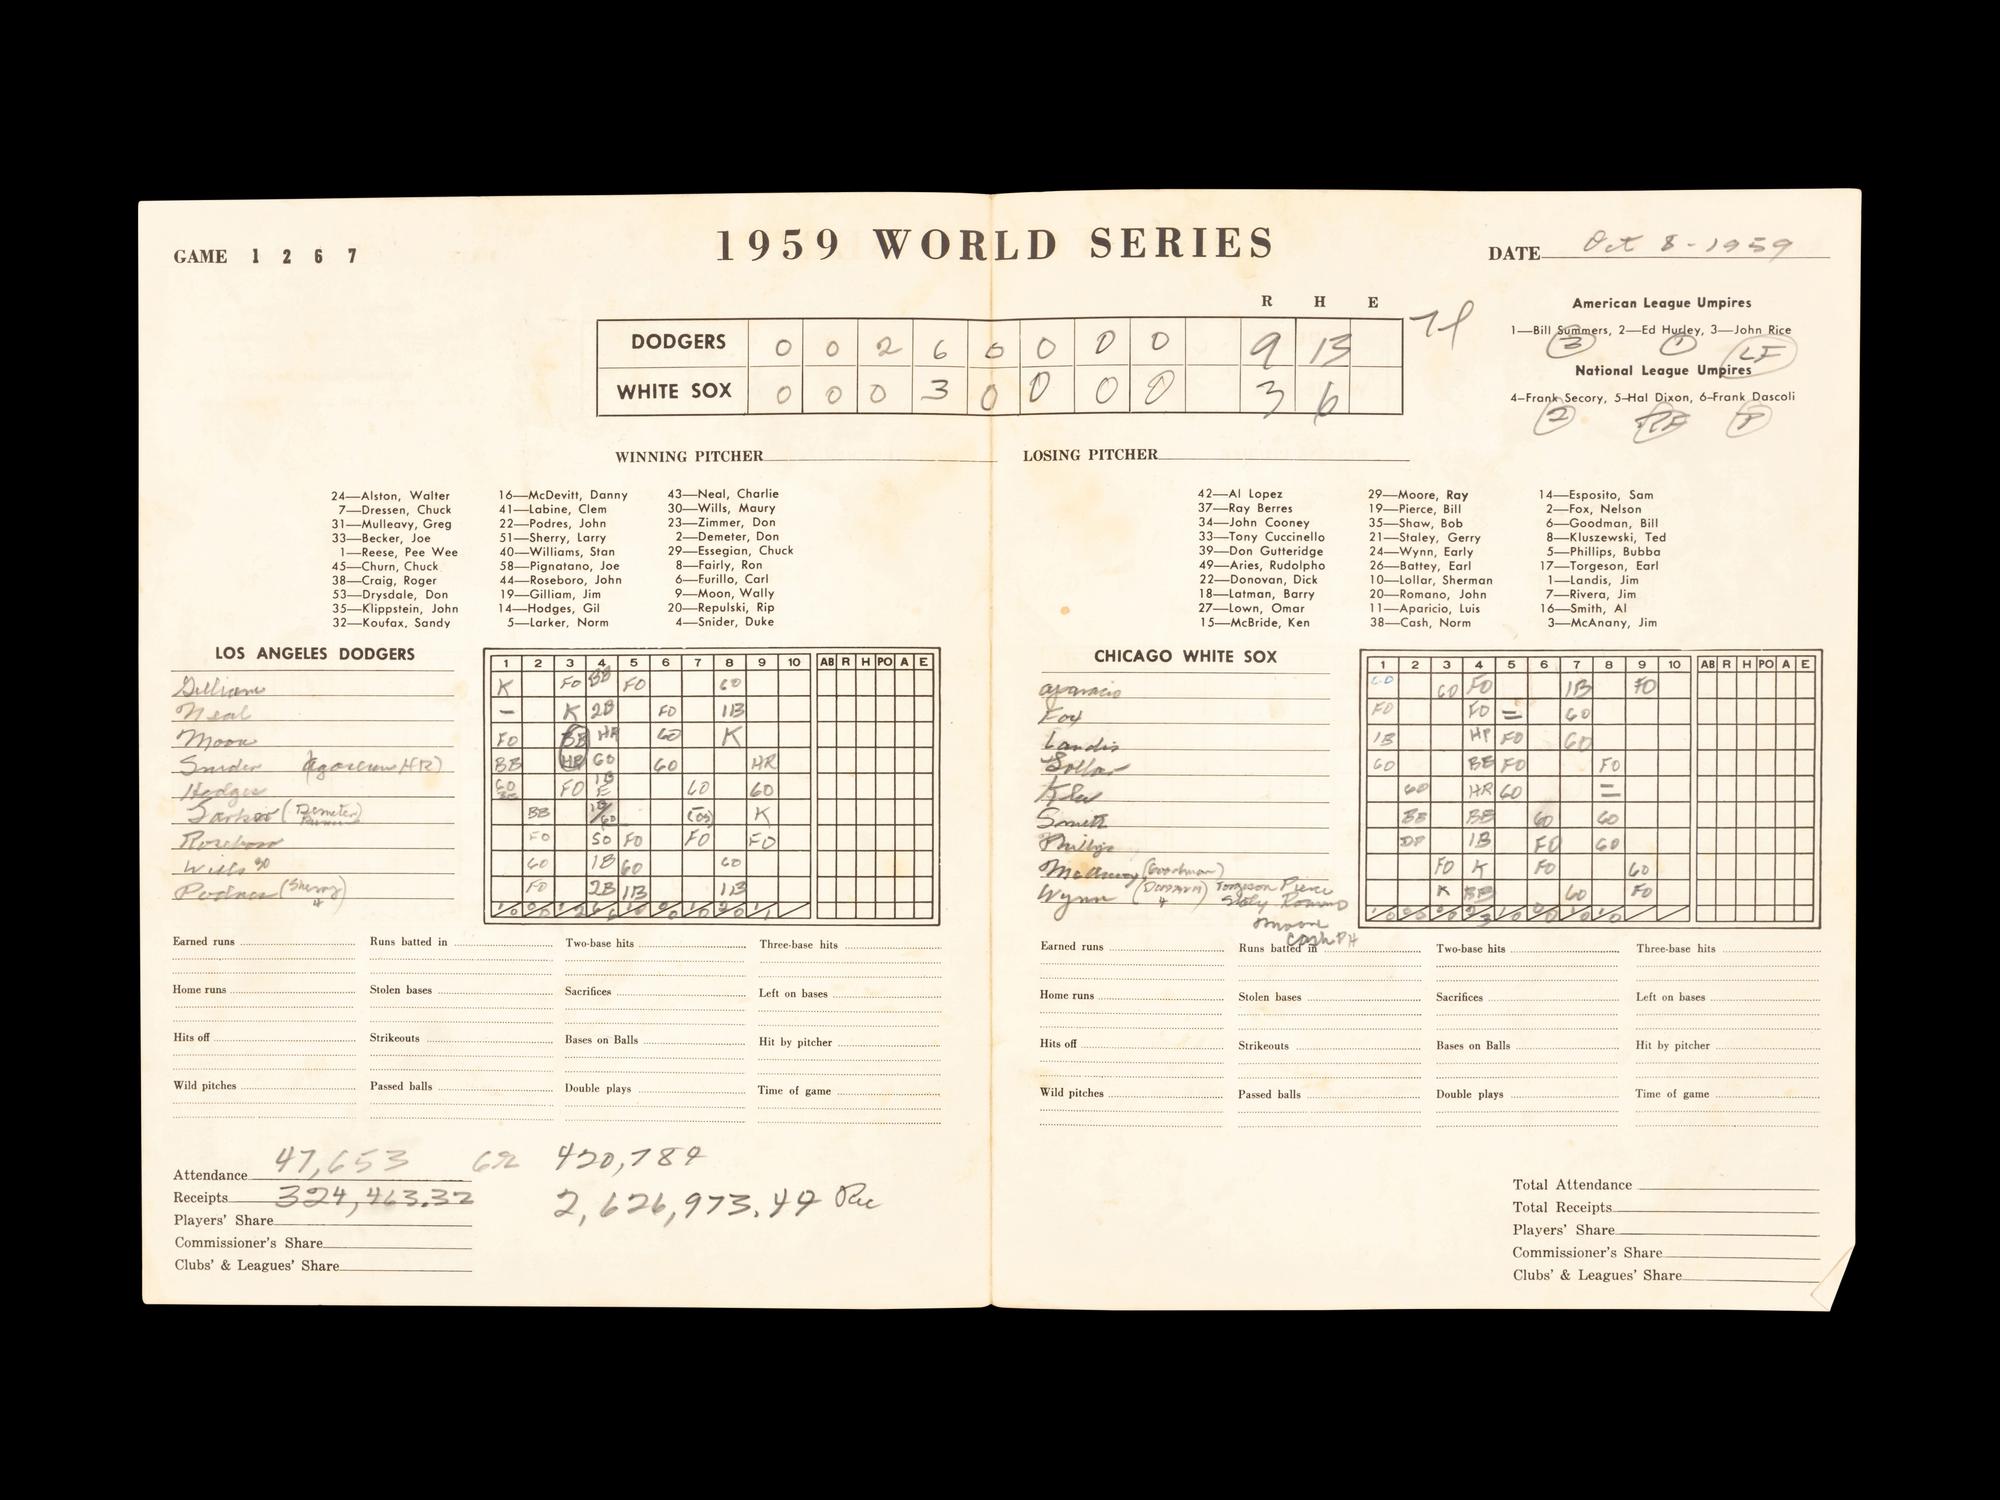 1959 WORLD SERIES
GAME 1 2 6 7
DATE Oct 8-1959
R H E
DODGERS 0 0 2 6 0 0 0 0 9 13
WHITE SOX 0 0 0 3 0 0 0 0 3 6
American League Umpires
1—Bill Summers, 2—Ed Hurley, 3—John Rice
3 1 LF
National League Umpires
4—Frank Secory, 5—Hal Dixon, 6—Frank Dascoli
2 RF P
WINNING PITCHER
LOSING PITCHER
24—Alston, Walter
7—Dressen, Chuck
31—Mulleavy, Greg
33—Becker, Joe
1—Reese, Pee Wee
45—Churn, Chuck
38—Craig, Roger
53—Drysdale, Don
35—Klippstein, John
32—Koufax, Sandy
16—McDevitt, Danny
41—Labine, Clem
22—Podres, John
51—Sherry, Larry
40—Williams, Stan
58—Pignatano, Joe
44—Roseboro, John
19—Gilliam, Jim
14—Hodges, Gil
5—Larker, Norm
43—Neal, Charlie
30—Wills, Maury
23—Zimmer, Don
2—Demeter, Don
29—Essegian, Chuck
8—Fairly, Ron
6—Furillo, Carl
9—Moon, Wally
20—Repulski, Rip
4—Snider, Duke
42—Al Lopez
37—Ray Berres
34—John Cooney
33—Tony Cuccinello
39—Don Gutteridge
49—Aries, Rudolpho
22—Donovan, Dick
18—Latman, Barry
27—Lown, Omar
15—McBride, Ken
29—Moore, Ray
19—Pierce, Bill
35—Shaw, Bob
21—Staley, Gerry
24—Wynn, Early
26—Battey, Earl
10—Lollar, Sherman
20—Romano, John
11—Aparicio, Luis
38—Cash, Norm
14—Esposito, Sam
2—Fox, Nelson
6—Goodman, Bill
8—Kluszewski, Ted
5—Phillips, Bubba
17—Torgeson, Earl
1—Landis, Jim
7—Rivera, Jim
16—Smith, Al
3—McAnany, Jim
LOS ANGELES DODGERS
1 2 3 4 5 6 7 8 9 10 AB R H PO A E
Gilliam K FO BB FO GO
Neal — K 2B FO 1B
Moon FO BB HR GO K
Snider HR) BB HR GO GO HR
Hodges GO FO 1B GO GO
Larker (Demeter BB K
Roseboro FO SO FO FO FO
Wills GO 1B GO GO
Podres (Sherry) FO 2B 1B 1B
CHICAGO WHITE SOX
1 2 3 4 5 6 7 8 9 10 AB R H PO A E
aparicio GO GO FO 1B FO
Fox FO FO = GO
Landis 1B HP FO GO
Lollar GO BB FO FO
Klu GO HR GO =
Smith BB BB GO GO
Phillips DP 1B FO GO
McAnany (Goodman) FO K FO GO
Wynn (Donovan) Torgeson Pierce K BB GO FO
Staly Romano
Moore
Cash PH
Earned runs
Runs batted in
Two-base hits
Three-base hits
Home runs
Stolen bases
Sacrifices
Left on bases
Hits off
Strikeouts
Bases on Balls
Hit by pitcher
Wild pitches
Passed balls
Double plays
Time of game
Earned runs
Runs batted in
Two-base hits
Three-base hits
Home runs
Stolen bases
Sacrifices
Left on bases
Hits off
Strikeouts
Bases on Balls
Hit by pitcher
Wild pitches
Passed balls
Double plays
Time of game
Attendance 47,653 420,784
Receipts 324,463.32 2,626,973.44 Rec
Players' Share
Commissioner's Share
Clubs' & Leagues' Share
Total Attendance
Total Receipts
Players' Share
Commissioner's Share
Clubs' & Leagues' Share